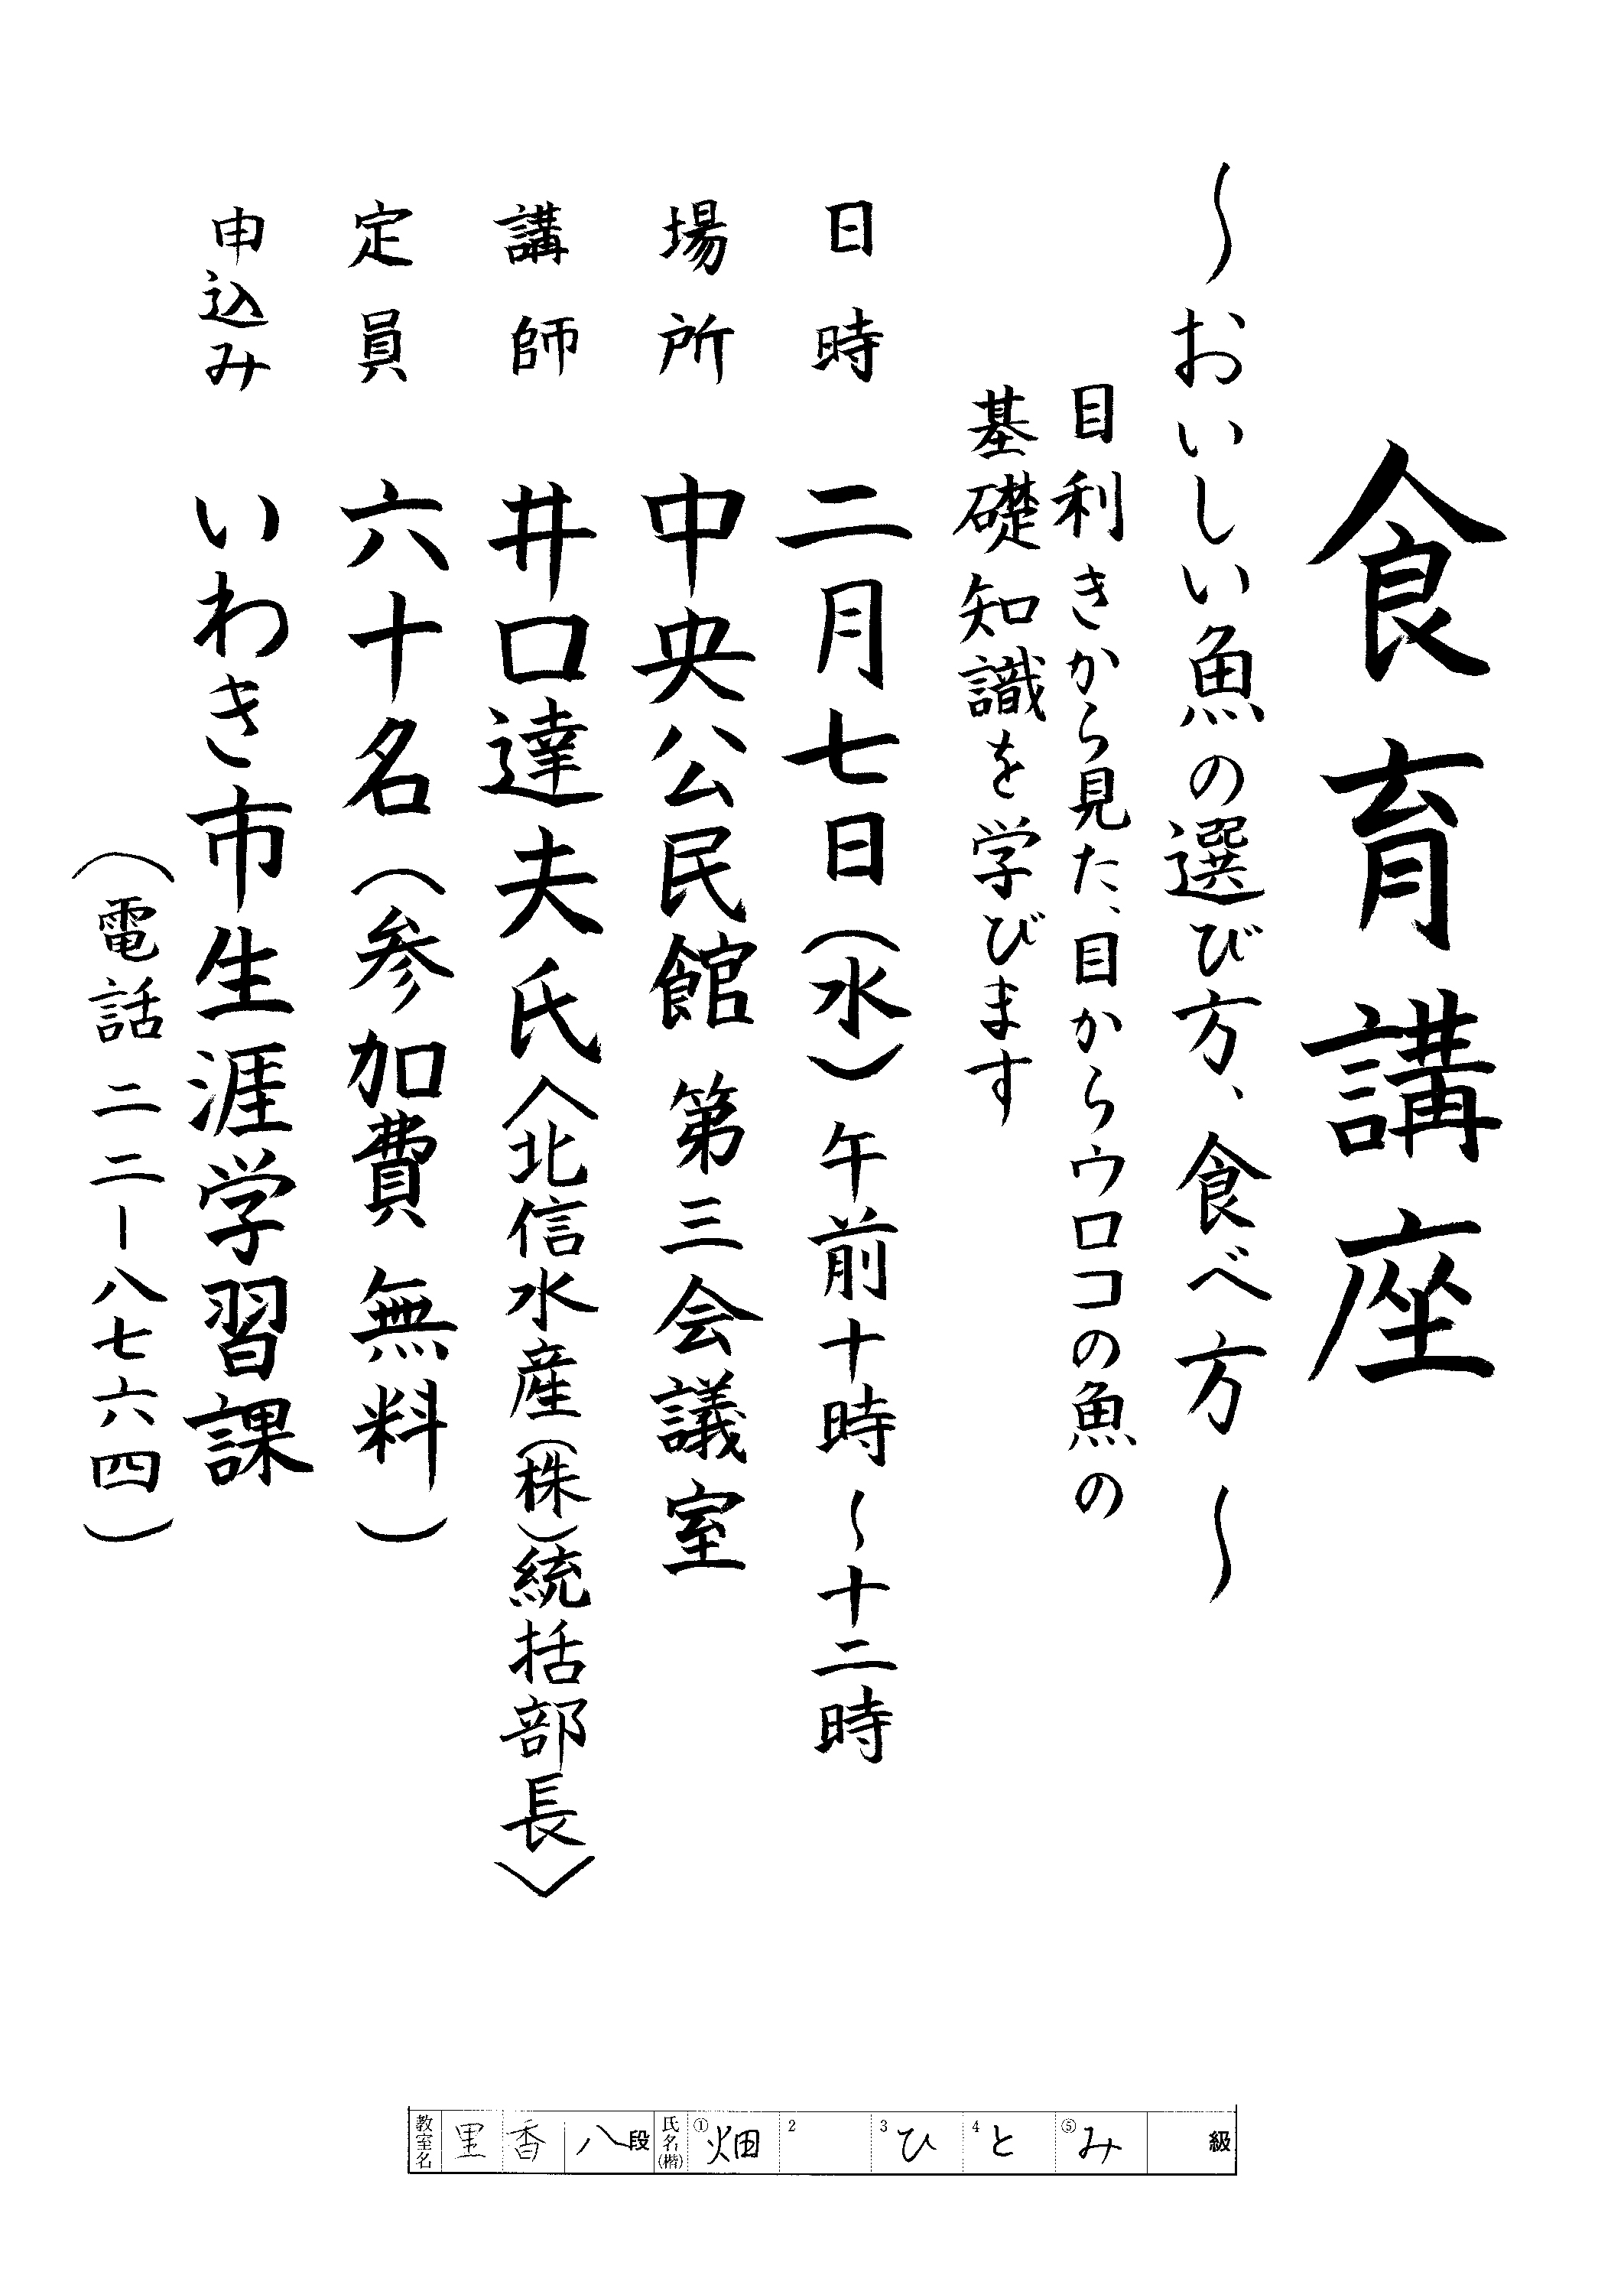 食育講座
〜おいしい魚の選び方、食べ方〜
目利きから見た、目からウロコの魚の
基礎知識を学びます
日時 二月七日（水）午前十時〜十二時
場所 中央公民館 第三会議室
講師 井口達夫氏〈北信水産（株）統括部長〉
定員 六十名（参加費無料）
申込み いわき市生涯学習課
（電話 二二ー八七六四）
教室名 里香 八段 氏名(楷) ①畑 2 3ひ 4と ⑤み 級